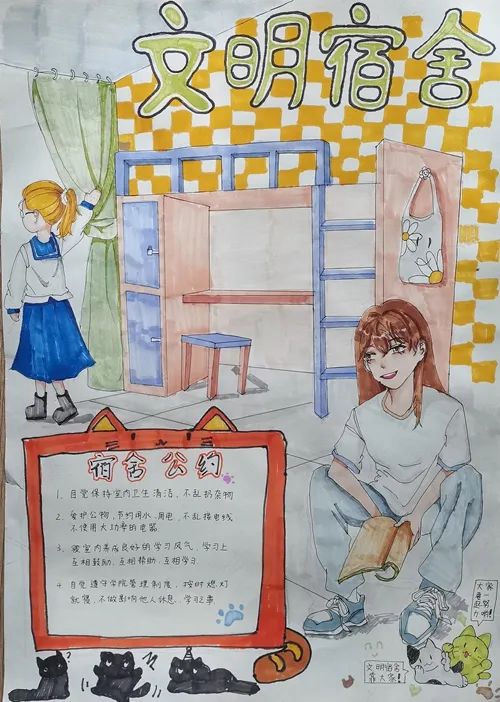 文明宿舍
宿舍公约
1. 自觉保持室内卫生清洁,不乱扔杂物
2. 爱护公物,节约用水、用电,不乱接电线
不使用大功率的电器
3. 寝室内养成良好的学习风气,学习上
互相鼓励、互相帮助、互相学习
4 自觉遵守学院管理制度,按时熄灯
就寝,不做影响他人休息、学习之事
大家
要一
起努
力哟!
文明宿舍
靠大家!